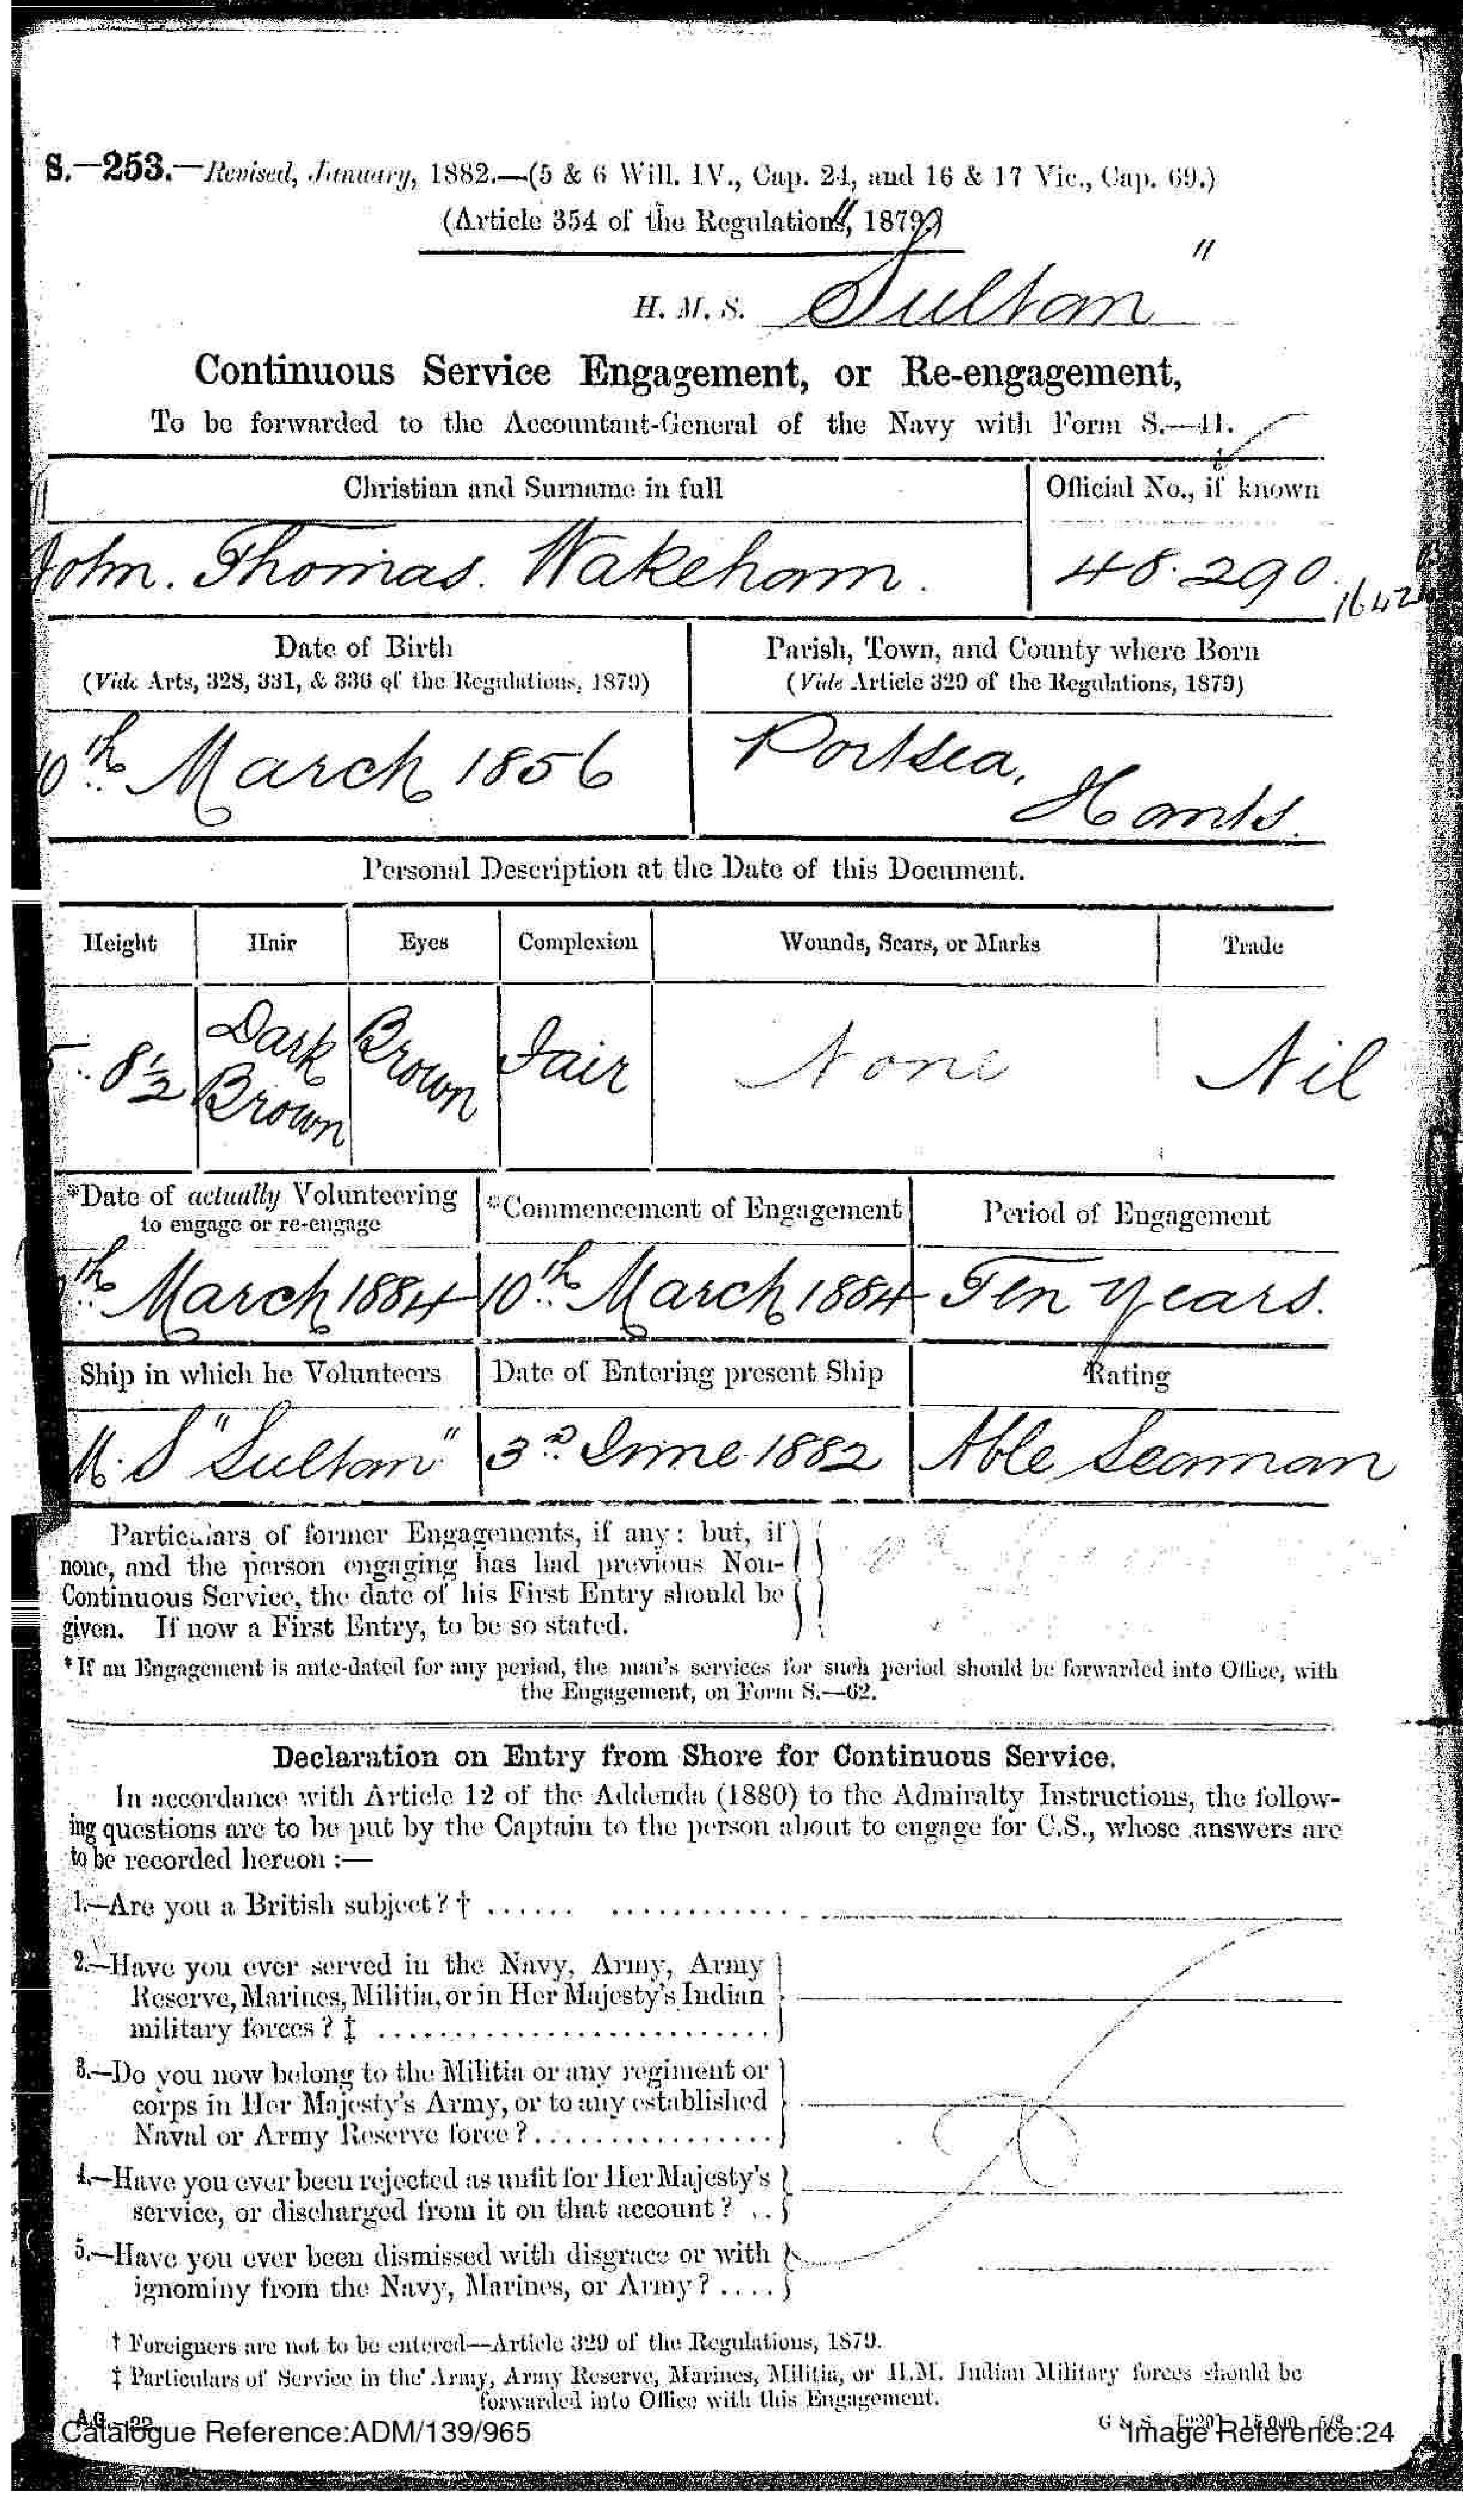 S.—253.—Revised, January, 1882.—(5 & 6 Will. IV., Cap. 24, and 16 & 17 Vic., Cap. 69.)
(Article 354 of the Regulations, 1879)
H. M. S. "Sultan"
Continuous Service Engagement, or Re-engagement,
To be forwarded to the Accountant-General of the Navy with Form S.—41.
Christian and Surname in full Official No., if known
John. Thomas. Wakeham. 48.290.
1642
Date of Birth Parish, Town, and County where Born
(Vide Arts, 328, 331, & 336 of the Regulations, 1879) (Vide Article 329 of the Regulations, 1879)
10th March 1856 Portsea, Hants.
Personal Description at the Date of this Document.
Height Hair Eyes Complexion Wounds, Scars, or Marks Trade
5. 8½ Dark Brown Brown Fair None Nil
*Date of actually Volunteering to engage or re-engage *Commencement of Engagement Period of Engagement
th March 1884 10th March 1884 Ten years.
Ship in which he Volunteers Date of Entering present Ship Rating
M. S "Sultan" 3rd June 1882 Able Seaman
Particulars of former Engagements, if any: but, if
none, and the person engaging has had previous Non-
Continuous Service, the date of his First Entry should be
given. If now a First Entry, to be so stated.
*If an Engagement is ante-dated for any period, the man's services for such period should be forwarded into Office, with
the Engagement, on Form S.—62.
Declaration on Entry from Shore for Continuous Service.
In accordance with Article 12 of the Addenda (1880) to the Admiralty Instructions, the follow-
ing questions are to be put by the Captain to the person about to engage for C.S., whose answers are
to be recorded hereon :—
1.—Are you a British subject? † ...... ............
2.—Have you ever served in the Navy, Army, Army
Reserve, Marines, Militia, or in Her Majesty's Indian
military forces? ‡ ..........................
3.—Do you now belong to the Militia or any regiment or
corps in Her Majesty's Army, or to any established
Naval or Army Reserve force?................
4.—Have you ever been rejected as unfit for Her Majesty's
service, or discharged from it on that account? ..
5.—Have you ever been dismissed with disgrace or with
ignominy from the Navy, Marines, or Army? ....
† Foreigners are not to be entered—Article 329 of the Regulations, 1879.
‡ Particulars of Service in the Army, Army Reserve, Marines, Militia, or H.M. Indian Military forces should be
forwarded into Office with this Engagement.
Catalogue Reference:ADM/139/965 Image Reference:24